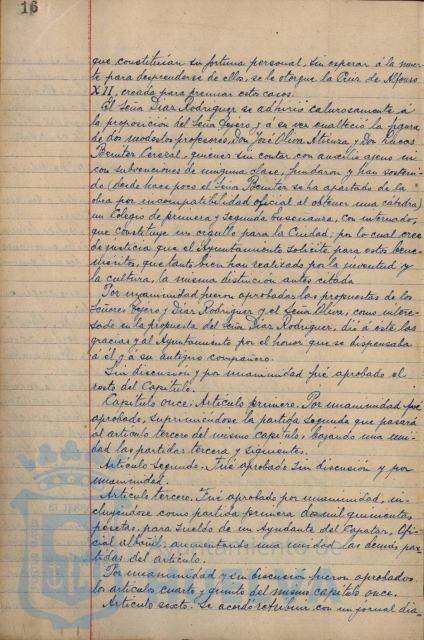 16
que constituían su fortuna personal, sin esperar á la muer-
te para desprenderse de ellos, se le otorgue la Cruz de Alfonso
XII, creada para premiar estos casos.
El Señor Diaz Rodriguez se adhirió calurosamente á
la proposición del Señor y á su vez enalteció la figura
de dos modestos profesores, Don José Oliva Atienza y Don Lucas
Benitez Cerezal, quienes sin contar con auxilio ajeno ni
con subvenciones de ninguna clase, fundaron y han sosteni-
do (desde hace poco el Señor Benitez se ha apartado de la
obra por incompatibilidad oficial al obtener una cátedra)
un Colegio de primera y segunda enseñanza, con internado,
que constituye un orgullo para la Ciudad; por lo cual cree
de justicia que el Ayuntamiento solicite para estos bene-
méritos, que tanto bien han realizado por la juventud y
la cultura, la misma distinción antes citada
Por unanimidad fueron aprobadas las propuestas de los
Señores y Diaz Rodriguez y el Señor Oliva, como intere-
sado en la propuesta del Señor Diaz Rodriguez, dió á éste las
gracias y al Ayuntamiento por el honor que se dispensaba
á él y á su antiguo compañero.
Sin discusión y por unanimidad fué aprobado el
resto del Capítulo.
Capítulo once: Artículo primero. Por unanimidad fué
aprobado, suprimiéndose la partida segunda que pasará
al artículo tercero del mismo capítulo, bajando una uni-
dad las partidas tercera y siguientes.
Artículo segundo. Fué aprobado sin discusión y por
unanimidad.
Artículo tercero. Fué aprobado por unanimidad, in-
cluyéndose como partida primera dos mil quinientas
pesetas, para sueldo de un Ayudante del Capataz, Ofi-
cial albañil, aumentando una unidad las demás par-
tidas del artículo.
Por unanimidad y sin discusión fueron aprobados
los artículos cuarto y quinto del mismo capítulo once.
Artículo sexto. Se acordó retribuir con un jornal dia-